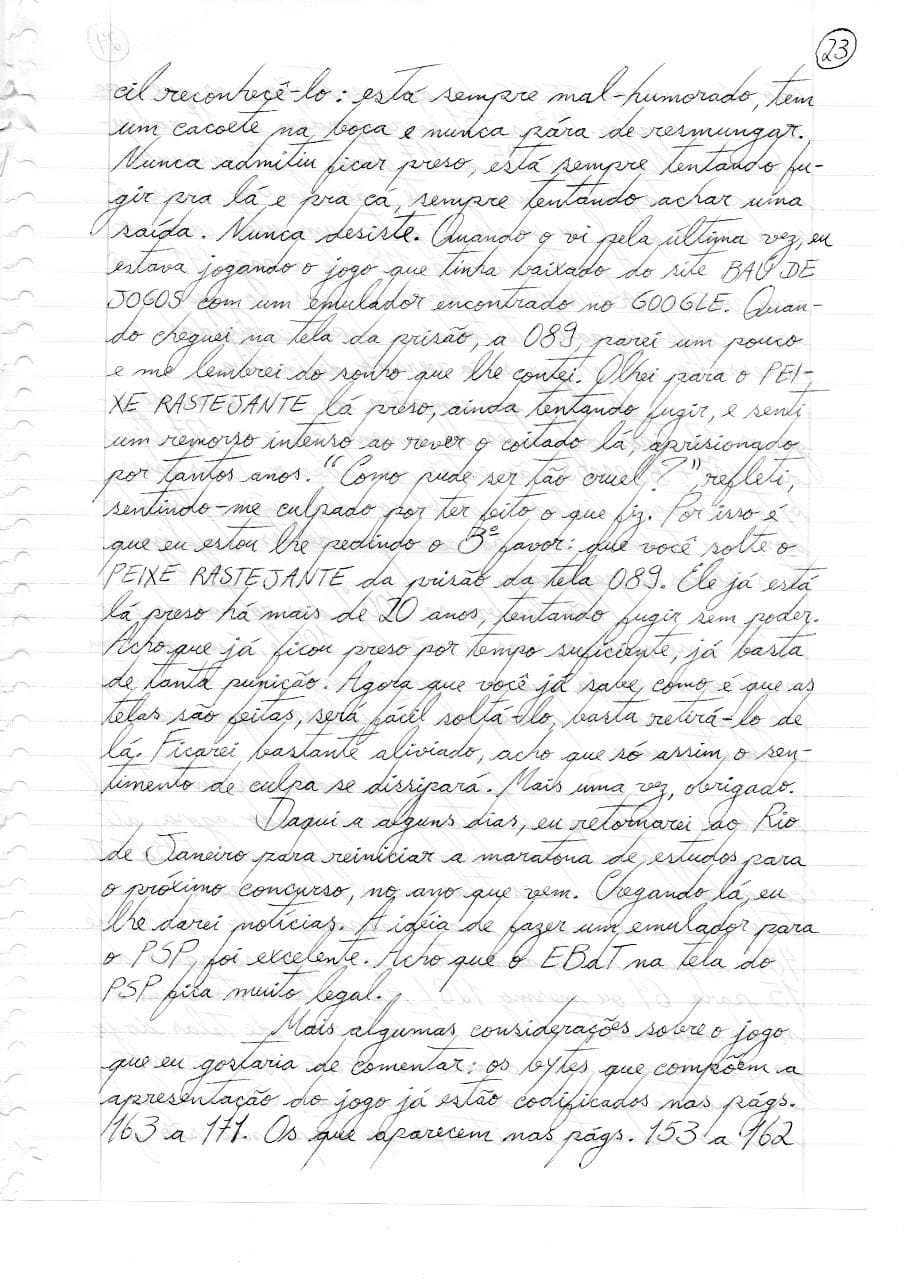 23
cil reconheçê-lo: está sempre mal-humorado, tem
um cacoete na boca e nunca pára de resmungar.
Nunca admitiu ficar preso, está sempre tentando fu-
gir pra lá e pra cá, sempre tentando achar uma
saída. Nunca desiste. Quando o vi pela última vez, eu
estava jogando o jogo que tinha baixado do site BAÚ DE
JOGOS com um emulador encontrado no GOOGLE. Quan-
do cheguei na tela da prisão, a 089, parei um pouco
e me lembrei do sonho que lhe contei. Olhei para o PEI-
XE RASTEJANTE lá preso, ainda tentando fugir, e senti
um remorso intenso ao rever o coitado lá, aprisionado
por tantos anos. "Como pude ser tão cruel?", refleti,
sentindo-me culpado por ter feito o que fiz. Por isso é
que eu estou lhe pedindo o 3º favor: que você solte o
PEIXE RASTEJANTE da prisão da tela 089. Ele já está
lá preso há mais de 20 anos, tentando fugir sem poder.
Acho que já ficou preso por tempo suficiente, já basta
de tanta punição. Agora que você já sabe como é que as
telas são feitas, será fácil soltá-lo, basta retirá-lo de
lá. Ficarei bastante aliviado, acho que só assim o sen-
timento de culpa se dissipará. Mais uma vez, obrigado.
Daqui a alguns dias, eu retornarei ao Rio
de Janeiro para reiniciar a maratona de estudos para
o próximo concurso, no ano que vem. Chegando lá, eu
lhe darei notícias. A idéia de fazer um emulador para
o PSP, foi excelente. Acho que o EBdT na tela do
PSP fica muito legal.
Mais algumas considerações sobre o jogo
que eu gostaria de comentar: os bytes que compõem a
apresentação do jogo já estão codificados nas págs.
163 a 171. Os que aparecem nas págs. 153 a 162